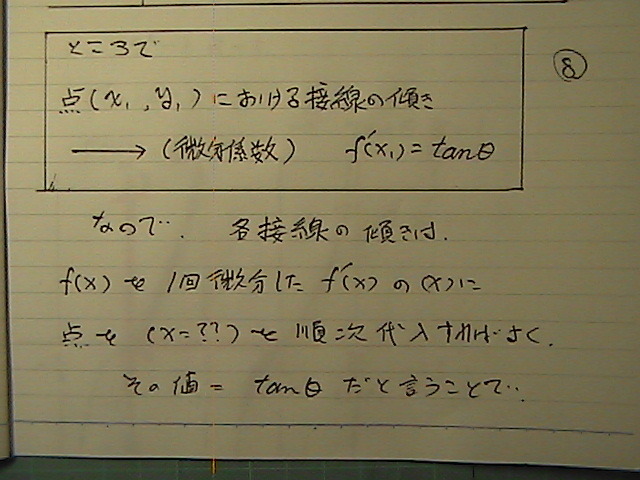 ところで
⑧
点(x₁,y₁)における接線の傾き
→(微分係数) f'(x₁)=tanθ
なので、各接線の傾きは、
f(x)を1回微分したf'(x)の(x)に
点を(x=??)を順次代入すればよく、
その値= tanθだと言うことで…